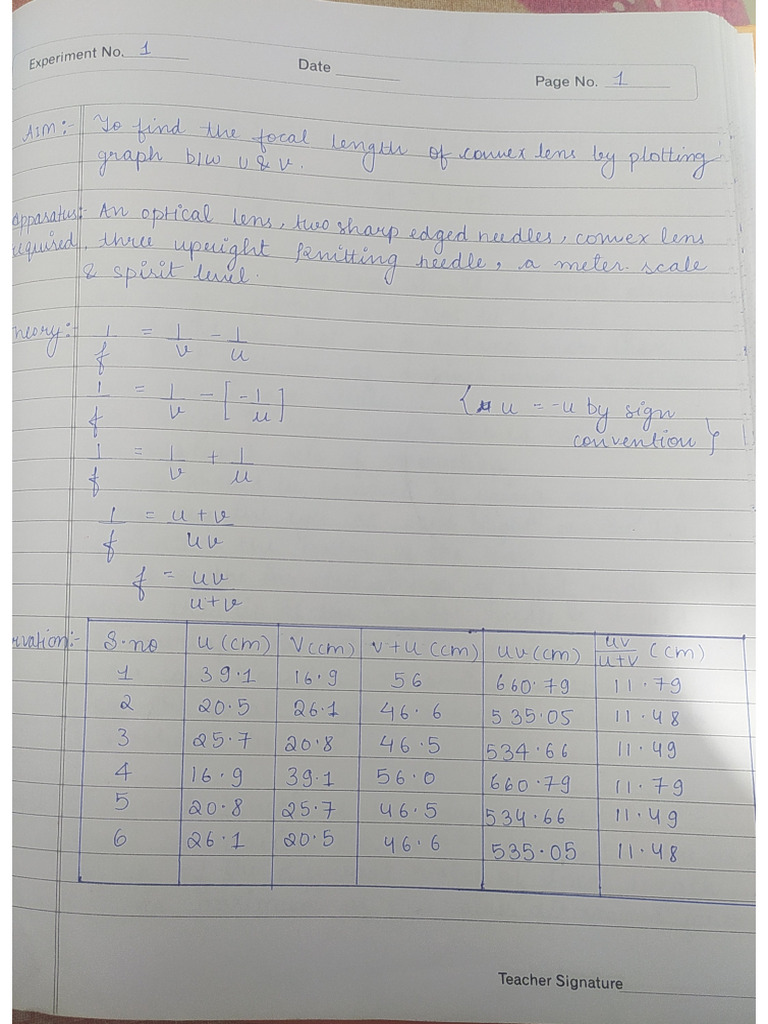 Experiment No. 1
Date
Page No. 1
AIM:- To find the focal length of convex lens by plotting
graph b/w u & v.
Apparatus:- An optical lens, two sharp edged needles, convex lens
equired. three upright knitting needle, a meter scale
& spirit level.
heory:- 1/f = 1/v - 1/u
1/f = 1/v - [-1/u] { u = -u by sign
convention }
1/f = 1/v + 1/u
1/f = u+v/uv
f = uv/u+v
rvation:- S.no u (cm) V(cm) v+u (cm) uv (cm) uv/u+v (cm)
1 39.1 16.9 56 660.79 11.79
2 20.5 26.1 46.6 535.05 11.48
3 25.7 20.8 46.5 534.66 11.49
4 16.9 39.1 56.0 660.79 11.79
5 20.8 25.7 46.5 534.66 11.49
6 26.1 20.5 46.6 535.05 11.48
Teacher Signature